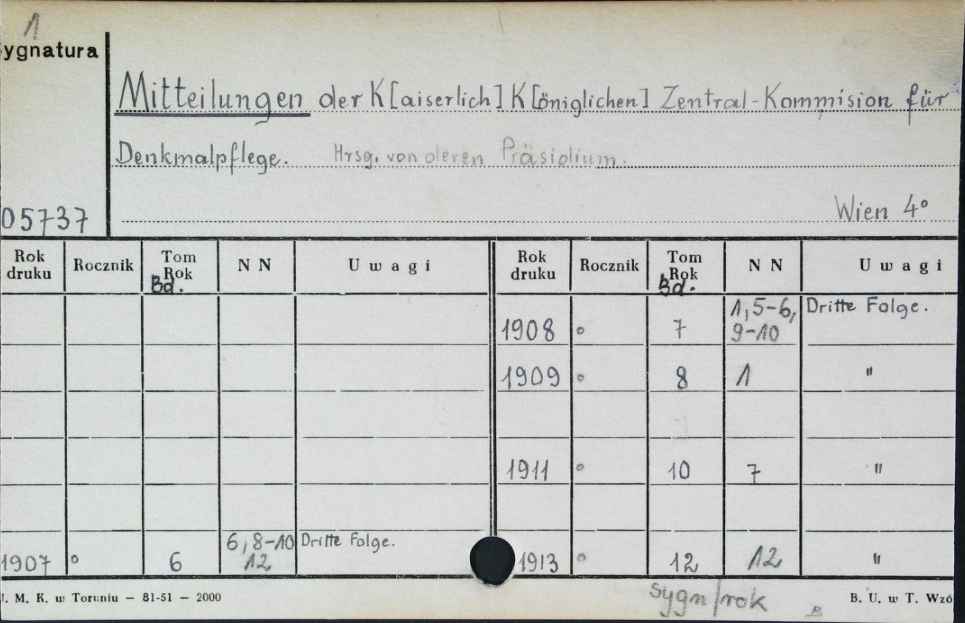 1
ygnatura
Mitteilungen der K[aiserlich] K[öniglichen] Zentral-Kommision für
Denkmalpflege. Hrsg. von deren Präsidium.
Wien 4°
05737
Rok druku Rocznik Tom Rok Bd. NN Uwagi Rok druku Rocznik Tom Rok Bd. NN Uwagi
1908 ° 7 1,5-6, 9-10 Dritte Folge.
1909 ° 8 1 "
1911 ° 10 7 "
1907 ° 6 6,8-10 12 Dritte Folge. 1913 ° 12 12 "
. M. K. w Toruniu — 81-51 — 2000
sygn/rok
B. U. w T. Wzó